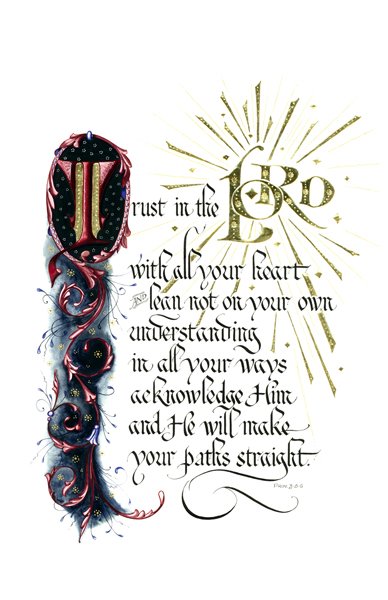 Trust in the LORD
with all your heart
AND lean not on your own
understanding
in all your ways
acknowledge Him
and He will make
your paths straight.
Prov. 3:5-6